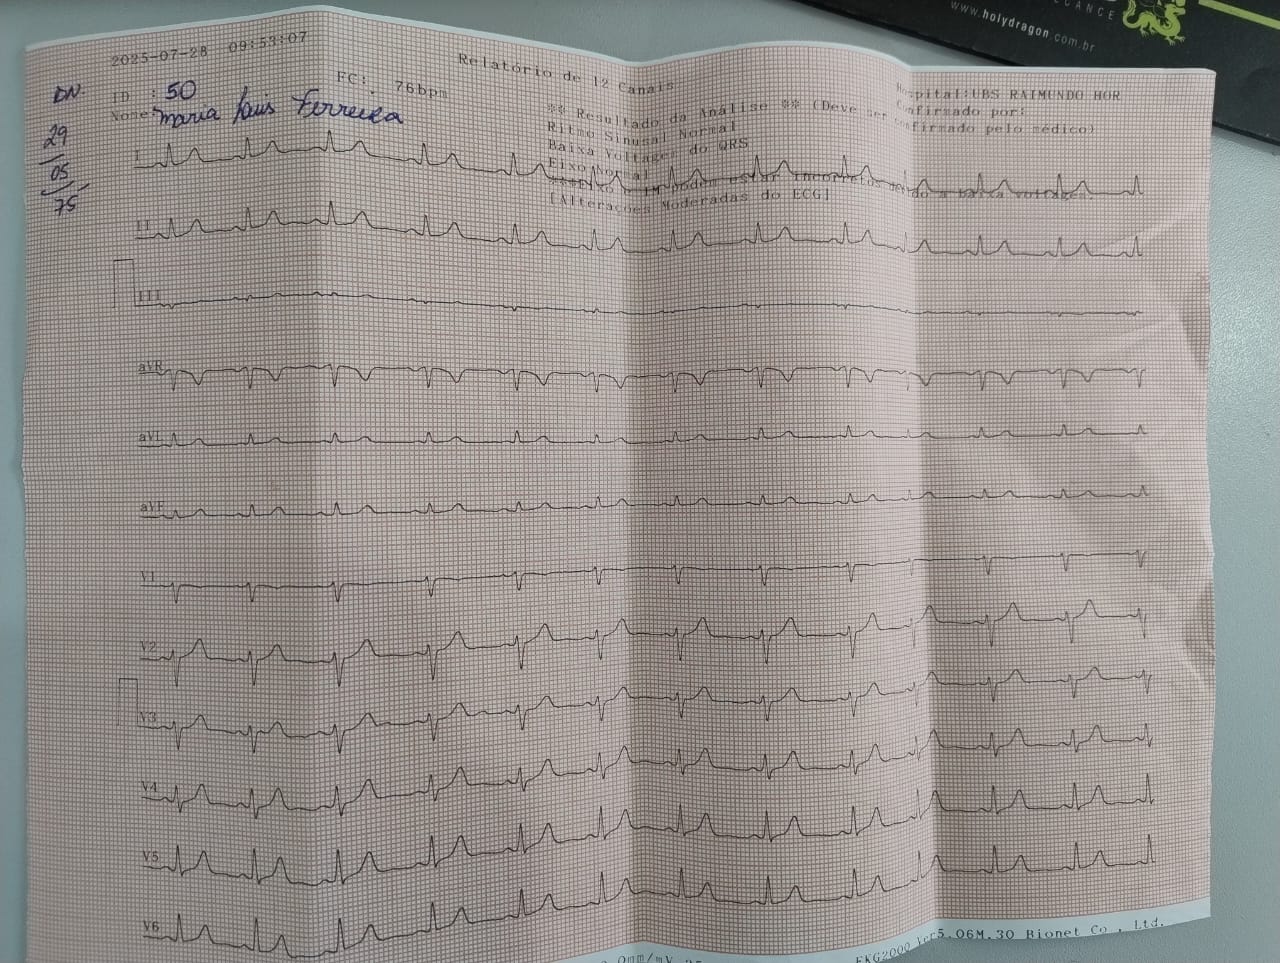 www.holydragon.com.br
2025-07-28 09:53:07
Relatório de 12 Canais
DN.
29
05
75
ID : 50
FC: 76bpm
Nome: Maria Luis Ferreira
Hospital:UBS RAIMUNDO HOR
Confirmado por:
** Resultado da Análise ** (Deve ser confirmado pelo médico)
Ritmo Sinusal Normal
Baixa Voltagem do QRS
Eixo Normal
podem estar incorretos devido a baixa voltagem.
[Alterações Moderadas do ECG]
I
II
III
aVR
aVL
aVF
V1
V2
V3
V4
V5
V6
mm/mV
EKG2000 Ver5.06M.30 Bionet Co., Ltd.